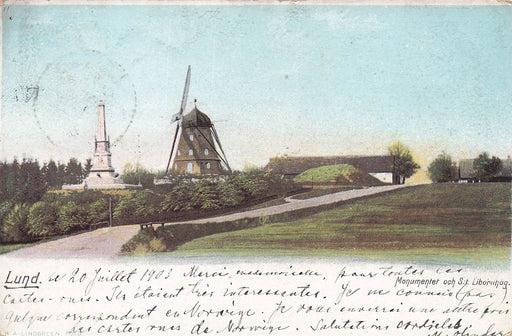 Lund. le 20 Juillet 1903 Merci, mademoiselle, pour toutes ces
Monumentet och S:t Liborii hög.
cartes-vues. Ils étaient très interessantes. Je ne connais (pas)
quelque correspondent en Norwège. Je vous enverrai une autre fois
des cartes vues de Norwège. Salutations cordiales
N:o A. LINDGREN